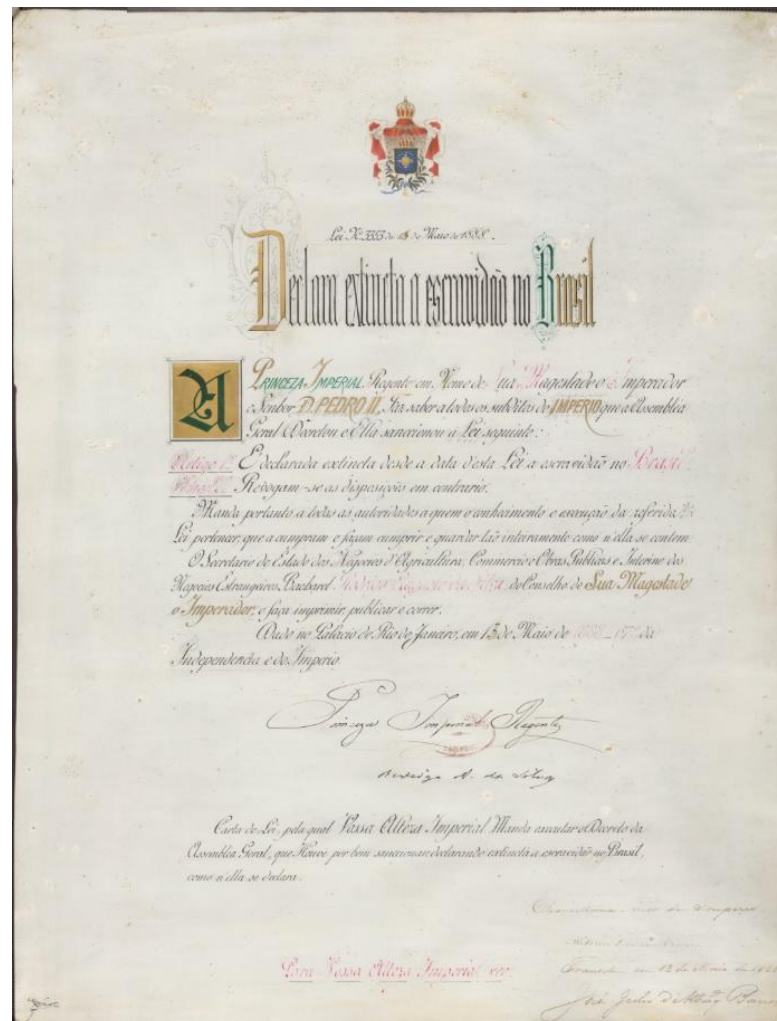 Lei Nº 3353 de 13 de Maio de 1888.
Declara extincta a escravidão no Brasil
A PRINCEZA IMPERIAL Regente em Nome de Sua Magestade o Imperador
o Senhor D. PEDRO II, Faz saber a todos os subditos do IMPERIO que a Assembléa
Geral Decretou e Ella sanccionou a Lei seguinte:
Artigo 1º É declarada extincta desde a data d'esta Lei a escravidão no Brasil.
Revogam-se as disposições em contrario.
Manda portanto a todas as autoridades a quem o conhecimento e execução da referida
Lei pertencer, que a cumpram e façam cumprir e guardar tão inteiramente como n'ella se contem
O Secretario de Estado dos Negocios d'Agricultura, Commercio e Obras Publicas e Interino dos
Negocios Estrangeiros, Bacharel Rodrigo Augusto da Silva do Conselho de Sua Magestade
o Imperador, o faça imprimir, publicar e correr.
Dado no Palacio do Rio de Janeiro, em 13 de Maio de 1888 67º da
Independencia e do Imperio.
Princeza Imperial Regente
Rodrigo A. da Silva
Carta de Lei, pela qual Vossa Alteza Imperial Manda executar o Decreto da
Assembléa Geral, que Houve por bem sanccionar declarando extincta a escravidão no Brasil,
como n'ella se declara.
Para Vossa Alteza Imperial ver.
13 de Maio de 1888
José Julio d'Albuq Barros